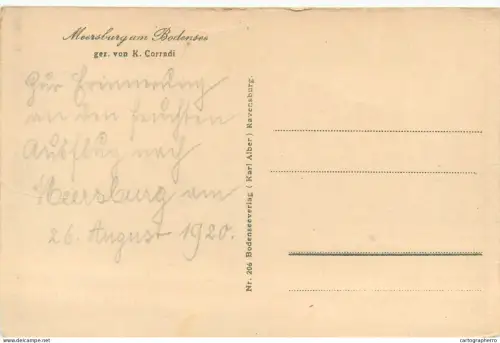 Meersburg am Bodensee
gez. von K. Corradi
Zur Erinnerung
an den feuchten
Ausflug nach
Meersburg am
26. August 1920.
Nr. 206 Bodenseeverlag (Karl Alber) Ravensburg.
www.delcampe.net
cartographerro